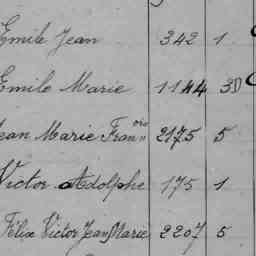 Emile Jean 342 1
Emile Marie 1144 3D
Jean Marie François 2175 5
Victor Adolphe 175 1
Félix Victor Jean Marie 2207 5